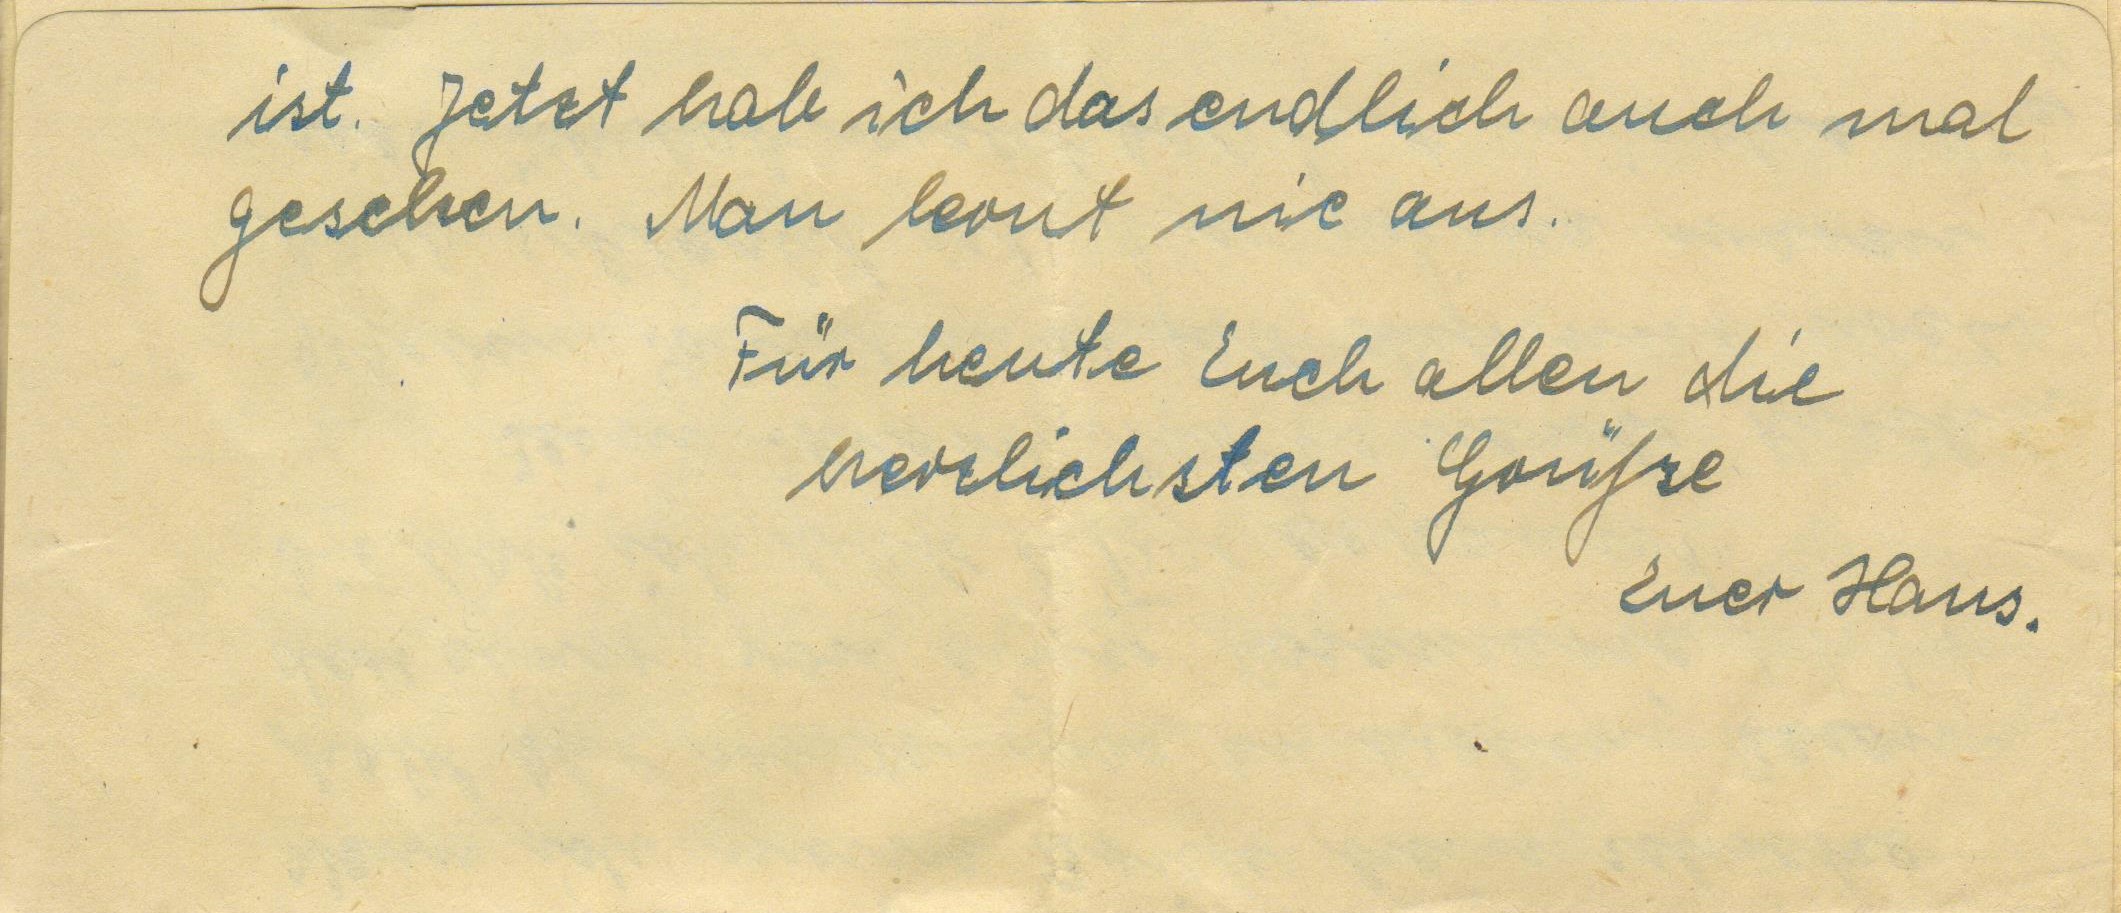 ist. Jetzt hab ich das endlich auch mal
gesehen. Man lernt nie aus.
Für heute Euch allen die
herzlichsten Grüße
Euer Hans.